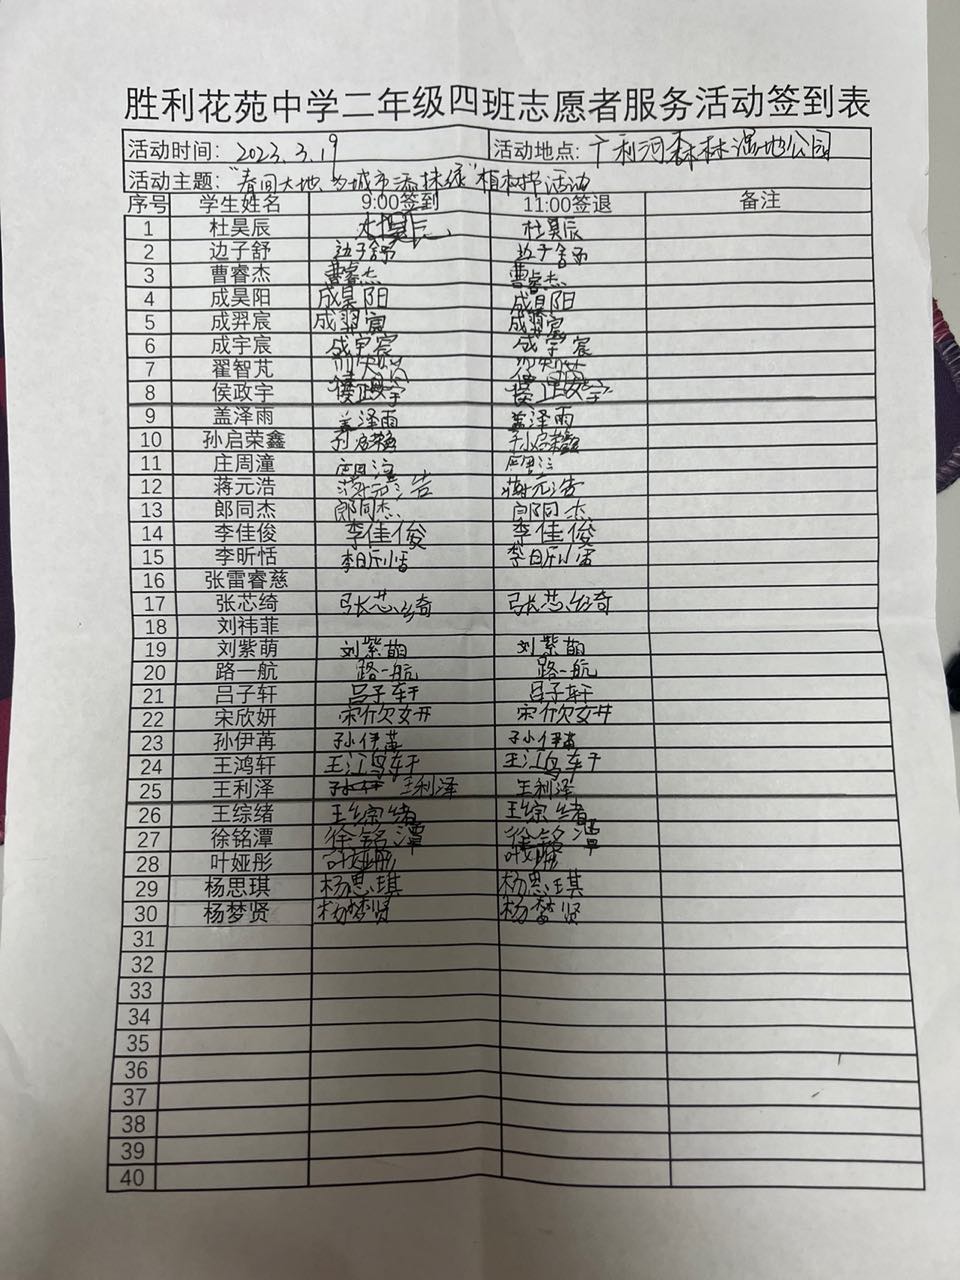 胜利花苑中学二年级四班志愿者服务活动签到表
活动时间：2023.3.19 活动地点：广利河森林湿地公园
活动主题："春回大地、为城市添抹绿"植树节活动
序号 学生姓名 9:00签到 11:00签退 备注
1 杜昊辰 杜昊辰 杜昊辰
2 边子舒 边子舒 边子舒
3 曹睿杰 曹睿杰 曹睿杰
4 成昊阳 成昊阳 成昊阳
5 成羿宸 成羿宸 成羿宸
6 成宇宸 成宇宸 成宇宸
7 翟智芃
8 侯政宇 侯政宇 侯政宇
9 盖泽雨 盖泽雨 盖泽雨
10 孙启荣鑫 孙启荣鑫 孙启荣鑫
11 庄周潼
12 蒋元浩 蒋元浩 蒋元浩
13 郎同杰 郎同杰 郎同杰
14 李佳俊 李佳俊 李佳俊
15 李昕恬 李昕恬 李昕恬
16 张雷睿慈
17 张芯绮 张芯绮 张芯绮
18 刘祎菲
19 刘紫萌 刘紫萌 刘紫萌
20 路一航 路一航 路一航
21 吕子轩 吕子轩 吕子轩
22 宋欣妍 宋欣妍 宋欣妍
23 孙伊苒 孙伊苒 孙伊苒
24 王鸿轩 王鸿轩 王鸿轩
25 王利泽 孙伊 王利泽 王利泽
26 王综绪 王综绪 王综绪
27 徐铭潭 徐铭潭 徐铭潭
28 叶娅彤 叶娅彤 叶娅彤
29 杨思琪 杨思琪 杨思琪
30 杨梦贤 杨梦贤 杨梦贤
31
32
33
34
35
36
37
38
39
40